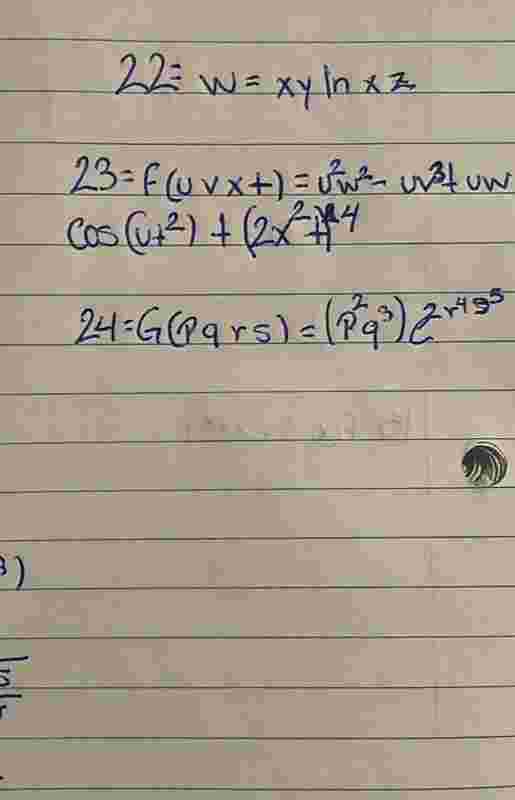 22= w = xy ln xz
23= f(uvxt) = u²w² - uv³+ uw
cos(ut²) + (2x²+)⁴
24= G(pqrs) = (p²q³)e^2r⁴s⁵
3)